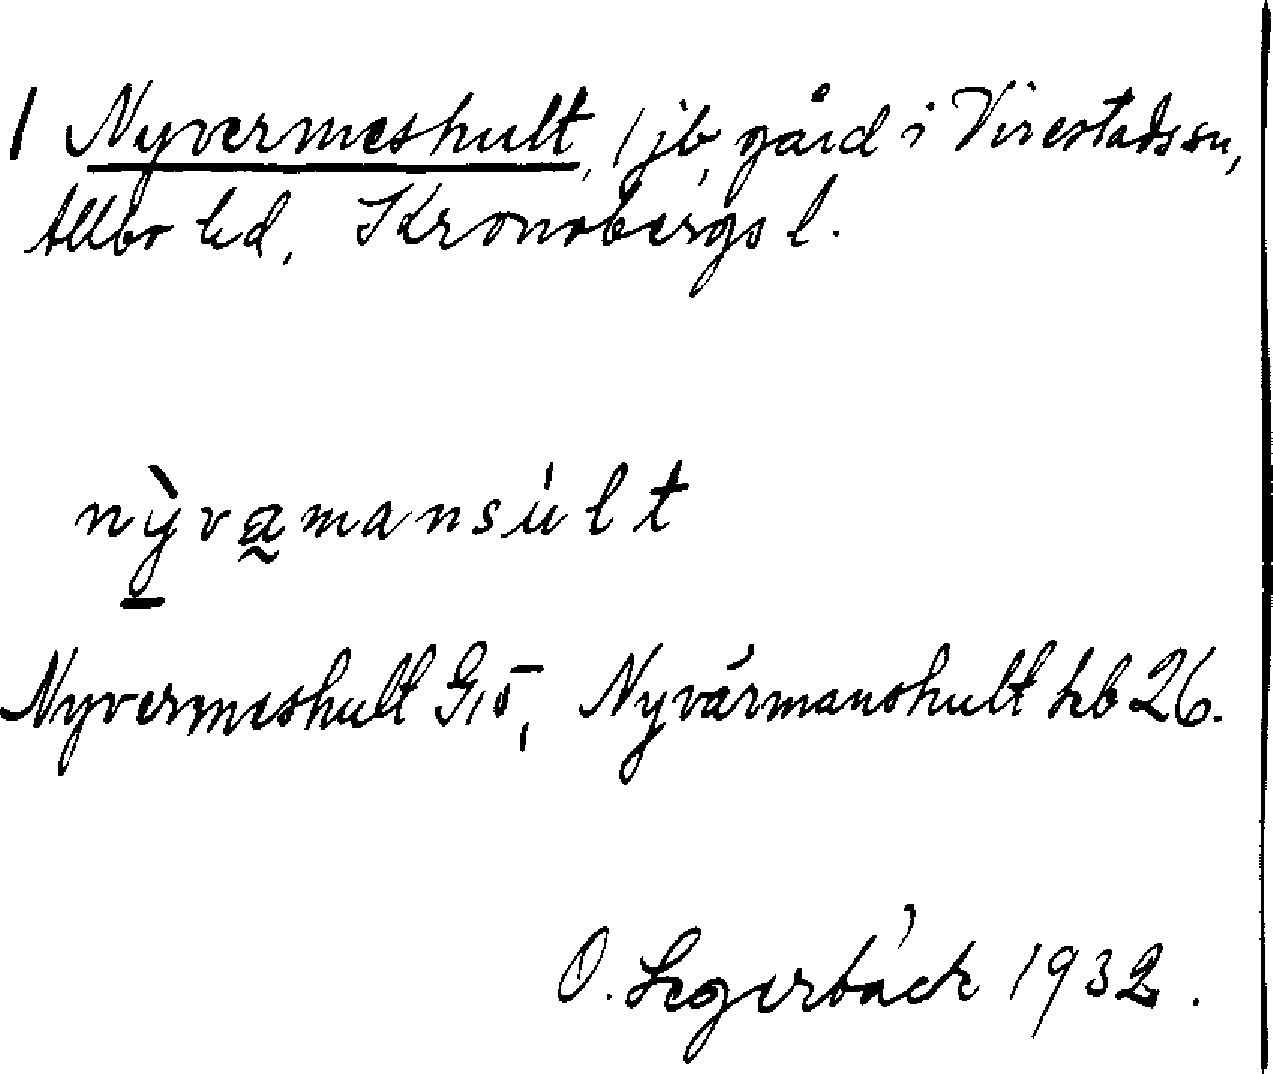 1 Nyvermeshult, 1 jb, gård i Virestads sn,
Allbo hd, Kronobergs l.
nỳvamansúlt
Nyvermeshult G, Nyvärmanshult hb 26.
O. Segerbäck 1932.